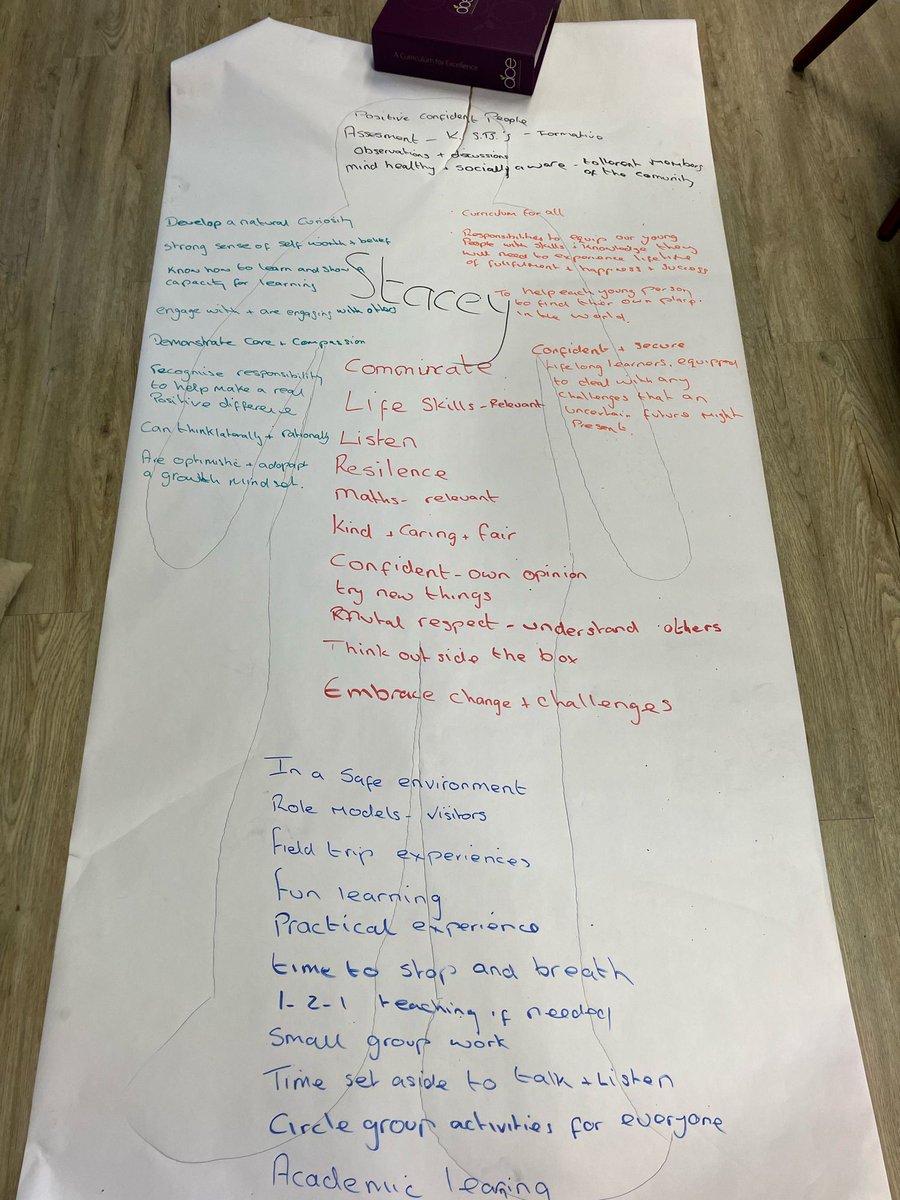 dbe
A Curriculum for Excellence
dbe
Positive Confident People
Assesment - K. S.B.'s - Formative
Observations + discussions
mind healthy + socially aware - tollorent members
of the comunity
Develop a natural Curiosity
strong sense of self worth + belief
Know how to learn and show a
capacity for learning
engage with + are engaging with others
Demonstrate Care + Compassion
Recognise responsibility
to help make a real
Positive difference
Can think laterally + rationally
Are optimistic + adopapt
a growth mind set.
Curriculum for all
Responsibilities to equip our young
People with skills + knowledge they
will need to experience lifetime
of fullfulment + happness + success
To help each young person
to find ther own
in the world.
Confident + secure
lifelong learners. equipped
to deal with any
challenges that an
uncertain future might
present.
Stacey
Commuicate
Life Skills - Relevant
Listen
Resilence
maths - relevant
Kind + Caring + fair
Confident - own opinion
try new things
respect - understand others
Think out side the box
Embrace change + challenges
In a Safe environment
Role Models - visitors
field trip experiences
fun learning
Practical experience
time to stop and breath
1-2-1 teaching if needed
Small group work
Time set aside to talk + Listen
Circle group activities for everyone
Academic learning